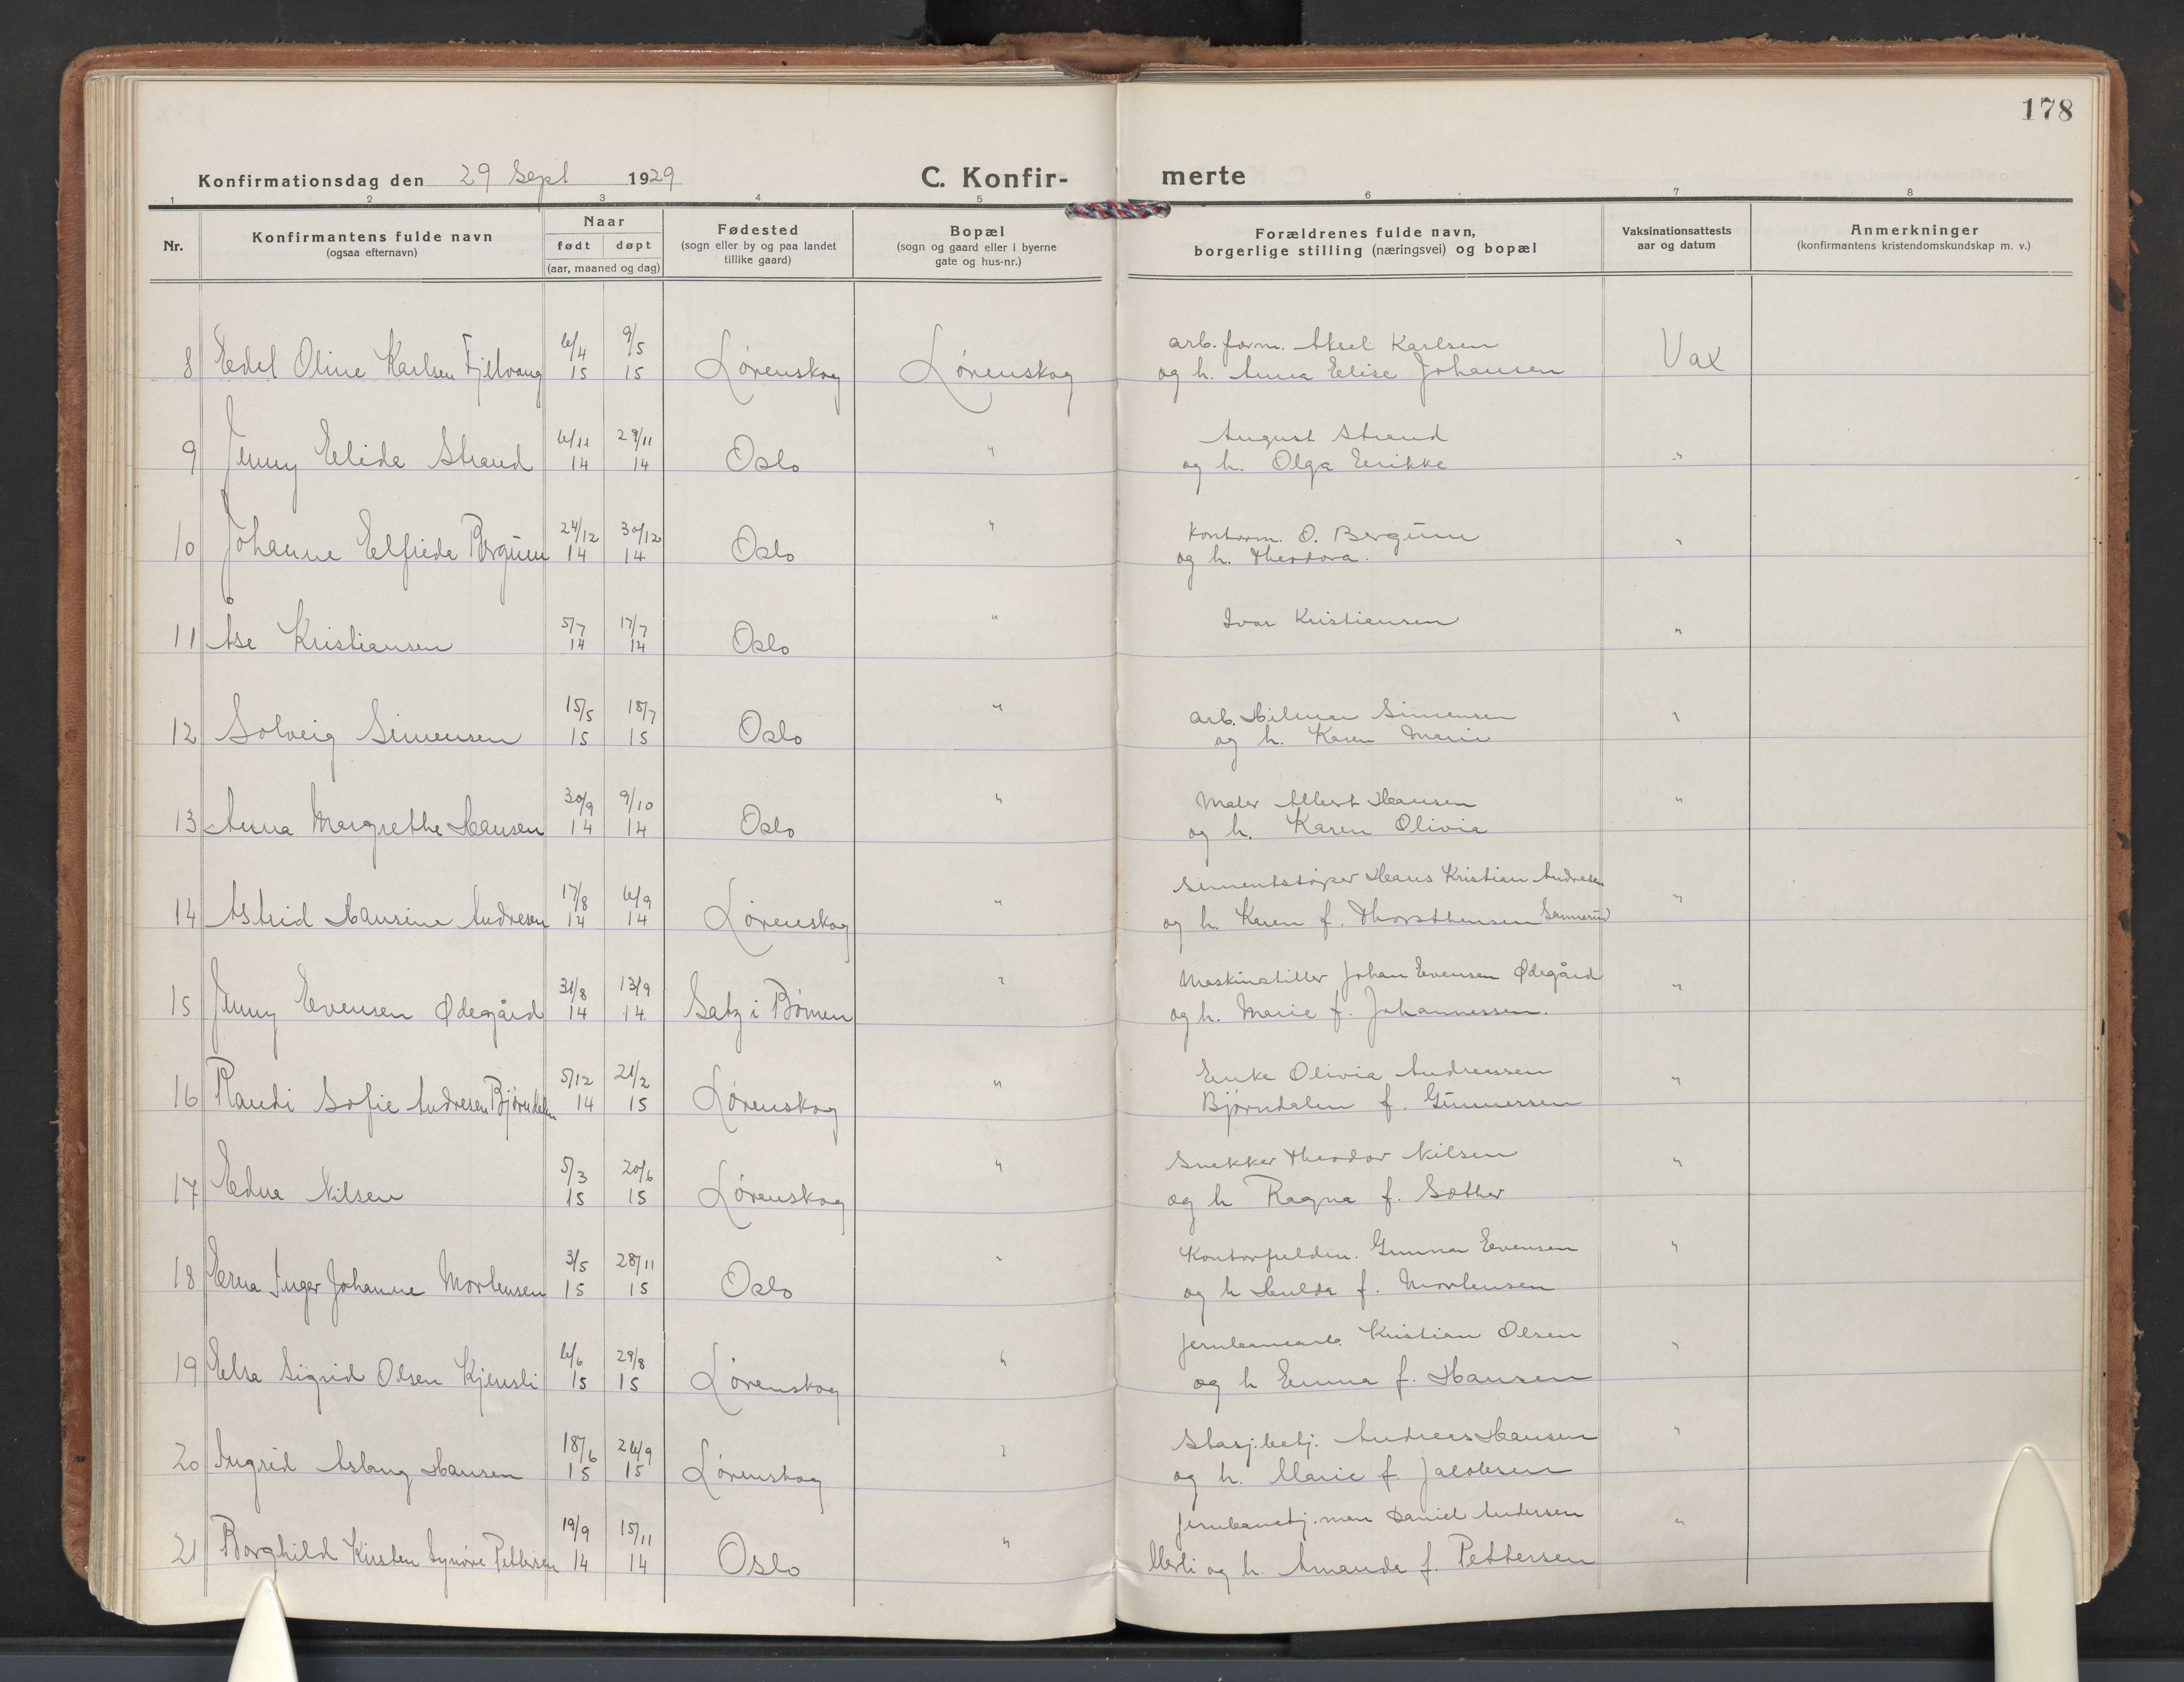 178
Konfirmationsdag den 29 Sept 1929 C. Konfir- merte
1 2 3 4 5 6 7 8
Nr. Konfirmantens fulde navn (ogsaa efternavn) Naar født døpt (aar, maaned og dag) Fødested (sogn eller by og paa landet tillike gaard) Bopæl (sogn og gaard eller i byerne gate og hus-nr.) Forældrenes fulde navn, borgerlige stilling (næringsvei) og bopæl Vaksinationsattests aar og datum Anmerkninger (konfirmantens kristendomskundskap m. v.)
6/4 9/5 arb. form. Aksel Karlsen
8 Edel Oline Karlsen Fjellvang 15 15 Lørenskog Lørenskog og h. Anna Elise Johansen Vax
6/11 29/11 August Strand
9 Jenny Elida Strand 14 14 Oslo " og h. Olga Enrikke "
24/12 30/12 " Kontorm. O. Bergum
10 Johanne Elfrida Bergum 14 14 Oslo og h. Theodora. "
5/7 17/7 " Ivar Kristiansen
11 Åse Kristiansen 14 14 Oslo "
15/5 18/7 " arb. Hilmar Simensen "
12 Solveig Simensen 15 15 Oslo og h. Karen Marie
30/9 9/10 " Maler Albert Hansen "
13 Anna Margrethe Hansen 14 14 Oslo og h. Karen Olivia
17/8 6/9 " Sementstøper Hans Kristian Andresen "
14 Astrid Hansine Andresen 14 14 Lørenskog og h. Karen f. Thorsthensen Sannerud
31/8 13/9 " Maskinstiller Johan Evensen Ødegård "
15 Jenny Evensen Ødegård 14 14 Satz i Bømen og h. Marie f. Johannessen.
5/12 21/2 " Enke Olivia Andreassen "
16 Randi Sofie Andresen Bjørndalen 14 15 Lørenskog Bjørndalen f. Gunnersen
5/3 20/6 " Snekker Theodor Nilsen "
17 Edna Nilsen 15 15 Lørenskog og h Ragna f. Sæther
3/5 28/11 " Kontorfuldm. Gunnar Evensen "
18 Erna Inger Johanne Mortensen 15 15 Oslo og h Hulda f. Mortensen
6/6 29/8 " Jernbanearb. Kristian Olsen "
19 Elsa Sigrid Olsen Kjensli 15 15 Lørenskog og h Emma f. Hansen
18/6 26/9 " Stasj.betj. Andreas Hansen "
20 Ingrid Aslaug Hansen 15 15 Lørenskog og h. Marie f. Jacobsen
19/9 15/11 " Jernbanebetj. men Daniel Andersen "
21 Borghild Kirsten Synøve Pettersen 14 14 Oslo og h. Amanda f. Pettersen